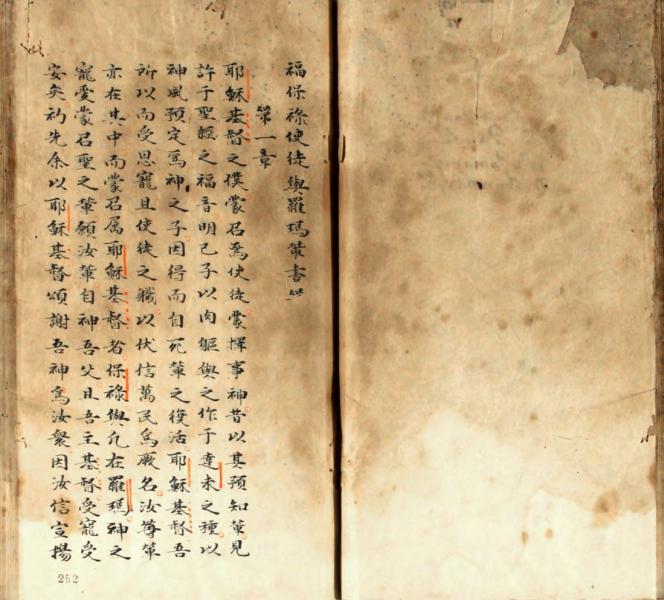 福保祿使徒與羅瑪輩書
第一章
耶穌基督之僕蒙召為使徒蒙擇事神昔以其預知輩見
許于聖經之福音明己子以肉軀與之作于達未之種以
神風預定為神之子因得而自死輩之復活耶穌基督吾
所以而受恩寵且使徒之職以伏信萬民為厥名汝等輩
亦在其中而蒙召屬耶穌基督者保祿與凡在羅瑪神之
寵愛蒙召聖之輩願汝輩自神吾父且吾主基督受寵受
安矣礿先余以耶穌基督頌謝吾神為汝衆因汝信宣揚
252